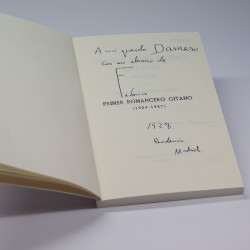 A mi querido Damaso
con un abrazo de
Federico
PRIMER ROMANCERO GITANO
(1924-1927)
1928
Residencia
Madrid